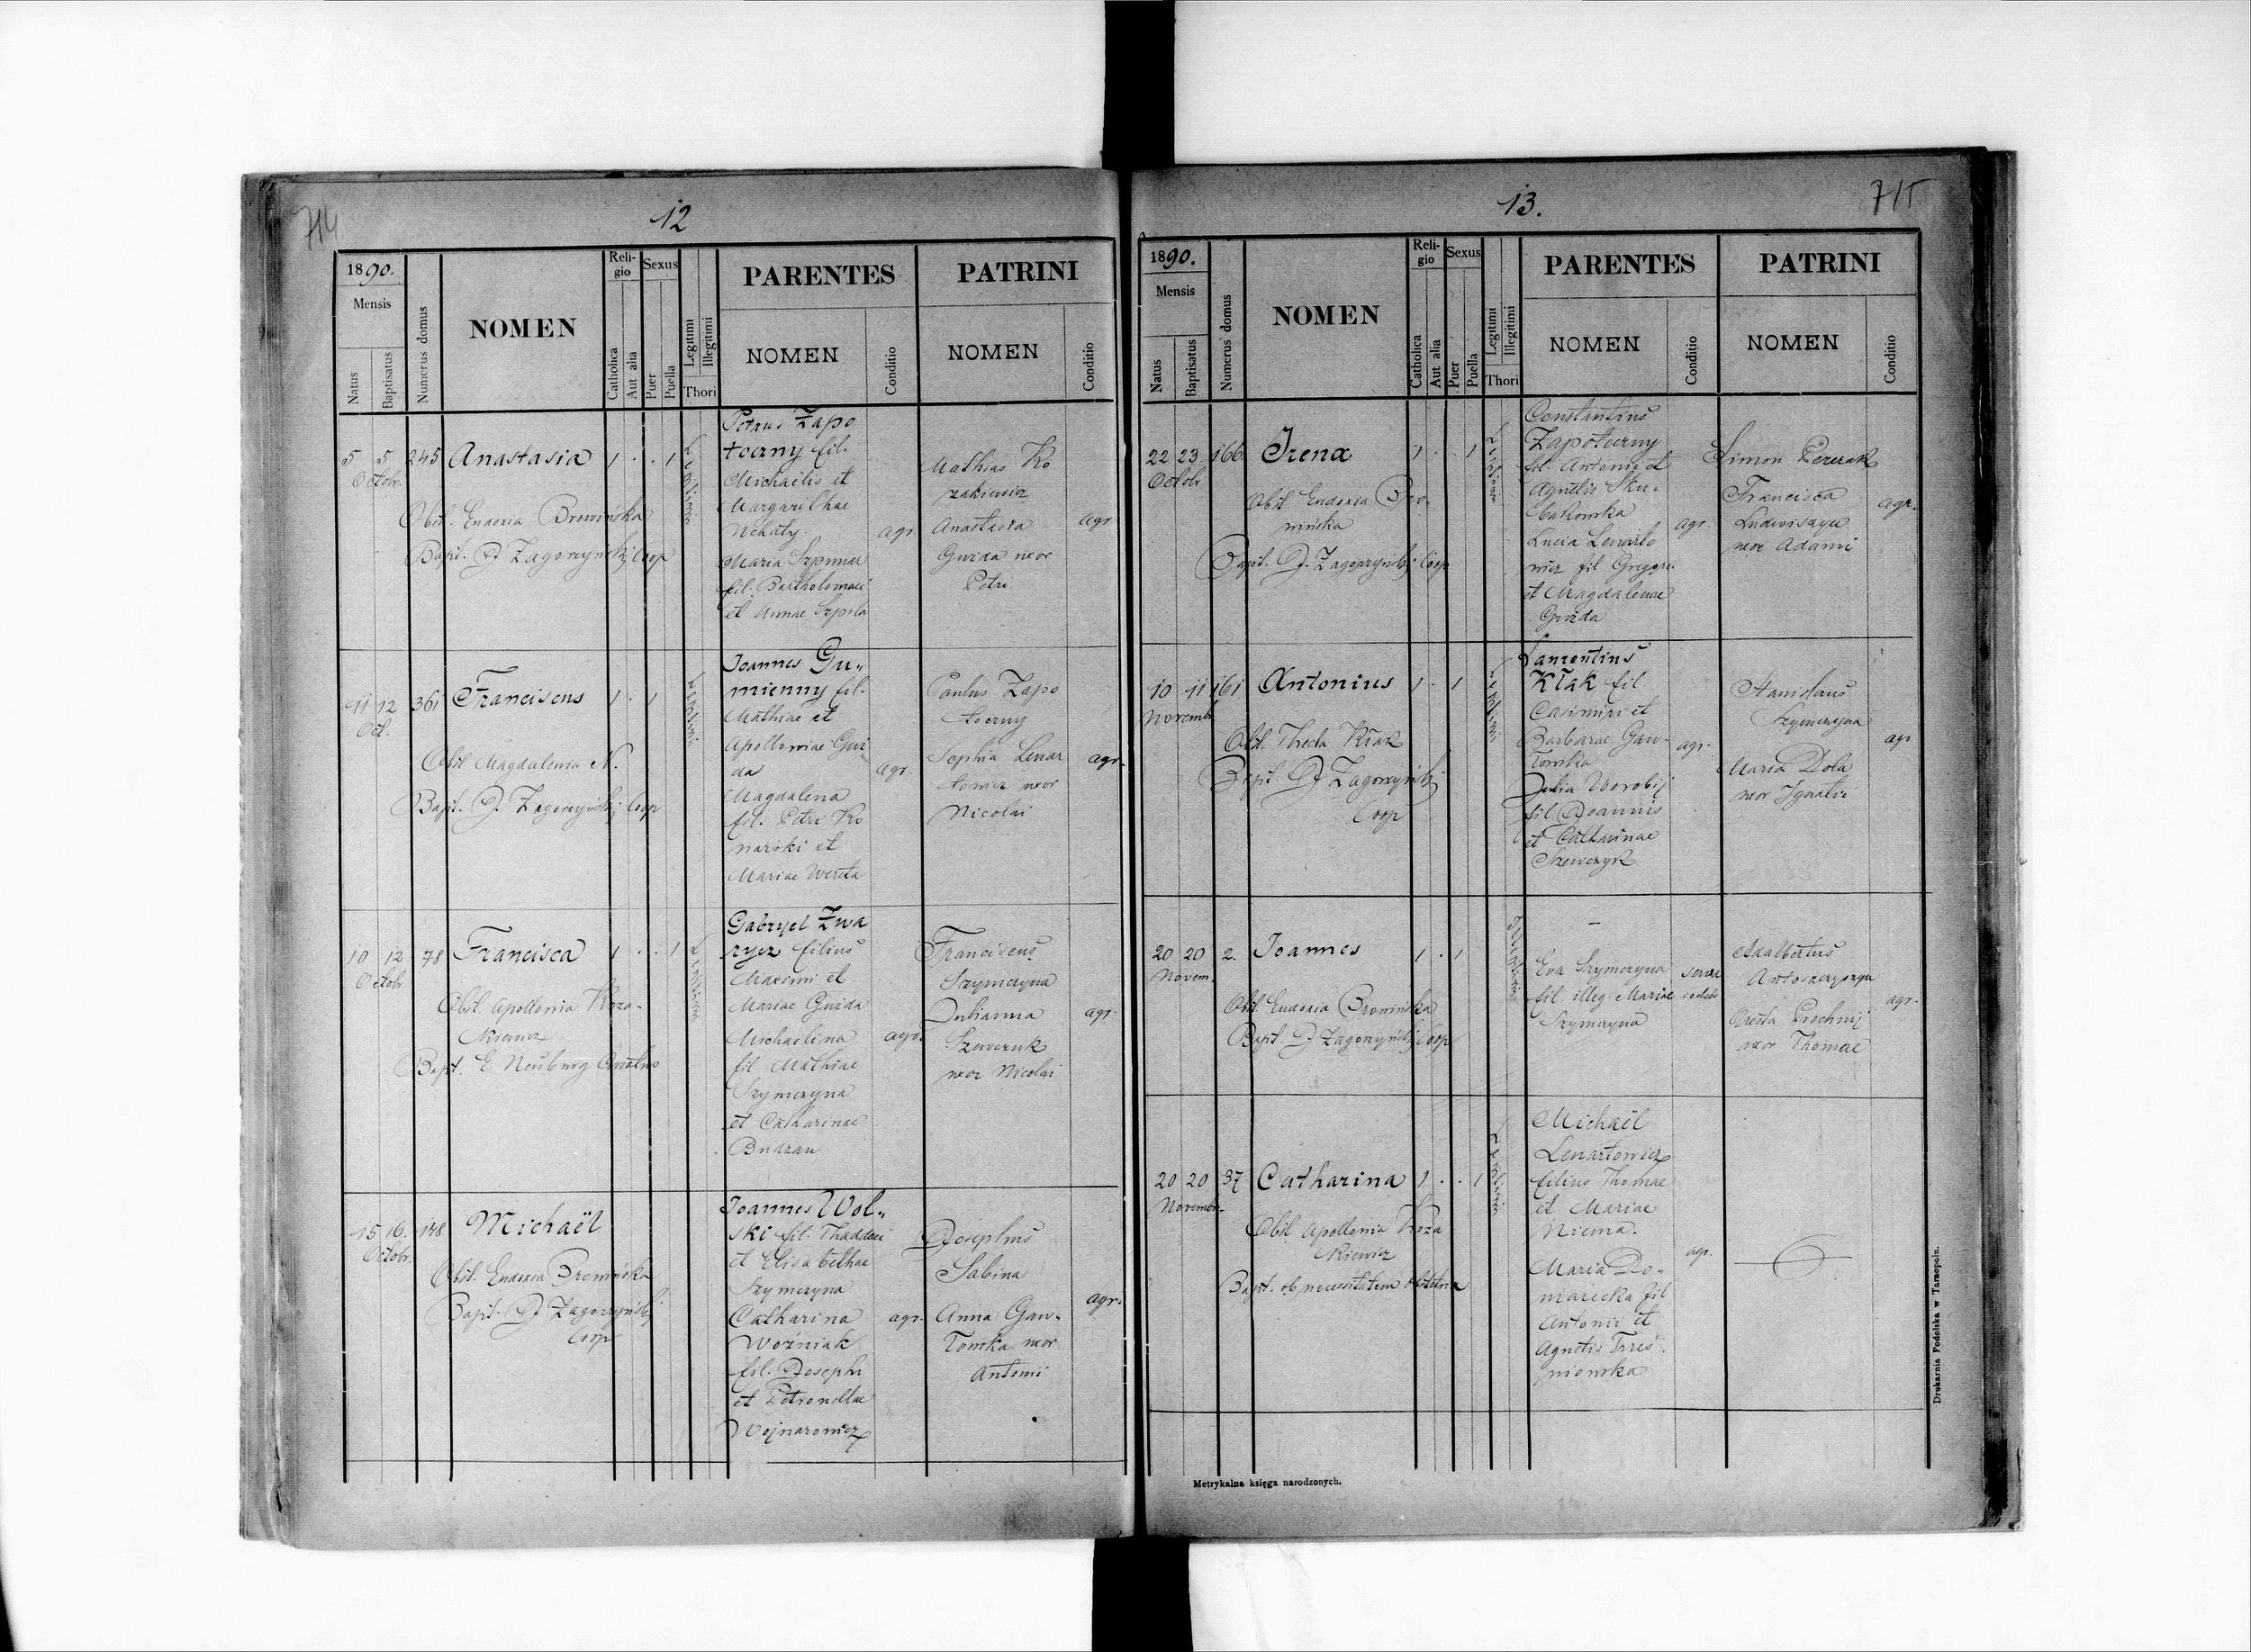 714
12
1890.
Mensis
Natus
Baptisatus
Numerus domus
NOMEN
Religio
Catholica
Aut alia
Sexus
Puer
Puella
Legitimi
Illegitimi
Thori
PARENTES
NOMEN
Conditio
PATRINI
NOMEN
Conditio
5 5 245 Anastasia 1 . . 1
Octobr.
Legitimi
Obst. Eudoxia Browińska
Bapt. J. Zagorzyński Coop
Petrus Zapo
toczny fil.
Michaelis et
Margarithae
Nehaty.
Maria Szpunar
fil. Bartholomaei
et Annae Szpila
agr.
Mathias Ko
zakiewicz
Anastasia
Gwida uxor
Petri
agr
11 12 361 Franciscus 1 . 1
Oct.
Legitimi
Obst Magdalena N.
Bapt. J. Zagorzyński Coop
Joannes Gu„
mienny fil.
Mathiae et
Apolloniae Gwi
da
Magdalena
fil. Petri Ko
narski et
Mariae
agr.
Paulus Zapo
toczny
Sophia Lenar
towicz uxor
Nicolai
agr.
10 12 78 Francisca 1 . . 1
Octobr.
Legitimi
Obst. Apollonia Koza-
kiewicz
Bapt. E Neuburg Curatus
Gabryel Zwa
rycz filius
Maximi et
Mariae Gwida
Michaelina
fil Mathiae
Szymczyna
et Catharinae
Budzan
agr.
Franciscus
Szymczyna
Julianna
Szewczuk
uxor Nicolai
agr.
15 16. 148 Michaël
Octobr.
Obst. Eudoxia Browińska
Bapt. J Zagorzyński
Coop
Joannes Wol„
ski fil. Thaddaei
et Elisabethae
Szymczyna
Catharina
Woźniak
fil. Josephi
et Petronellae
Wojnarowicz
agr.
Josephus
Sabina
Anna Gaw-
łowska uxor
Antonii
agr.
715
13.
1890.
Mensis
Natus
Baptisatus
Numerus domus
NOMEN
Religio
Catholica
Aut alia
Sexus
Puer
Puella
Legitimi
Illegitimi
Thori
PARENTES
NOMEN
Conditio
PATRINI
NOMEN
Conditio
22 23 166 Irena 1 . . 1
Octobr
Legitimi
Obst Eudoxia Bro-
wińska
Bapt. J. Zagorzyński Coop
Constantinus
Zapotoczny
fil. Antonii et
Agnetis Sku-
bakowska
Lucia Lenarto
wicz fil Gregorii
et Magdalenae
Gwida
agr.
Simon
Francisca
Ludwiszyn
uxor Adami
agr.
10 11 161 Antonius 1 . 1
Novembr.
Legitimi
Obst. Thecla Kłak
Bapt. J Zagorzyński
Coop
Laurentius
Kłak fil
Casimiri et
Barbarae Gaw-
łowska
Julia Worobij
fil Joannis
et Catharinae
Szewczyk
agr.
Stanislaus
Szymczyna
Maria Dola
uxor Ignatii
agr
20 20 2. Joannes 1 . 1
Novem.
Illegitimi
Obst. Eudoxia Browińska
Bapt. J Zagorzyński Coop
–
Eva Szymczyna
fil. illeg. Mariae
Szymczyna
Adalbertus
Antoszczyszyn
Oresta Prochnij
uxor Thomae
agr.
20 20 37 Catharina 1 . . 1
Novembr.
Legitimi
Obst Apollonia Koza
kiewicz
Bapt. ob necessitatem obstetrix
Michaël
Lenartowicz
filius Thomae
et Mariae
Niema.
Maria Do-
marecka fil
Antonii et
Agnetis Trześ-
niowska
agr.
Metrykalna księga narodzonych.
Drukarnia Podolska w Tarnopolu.